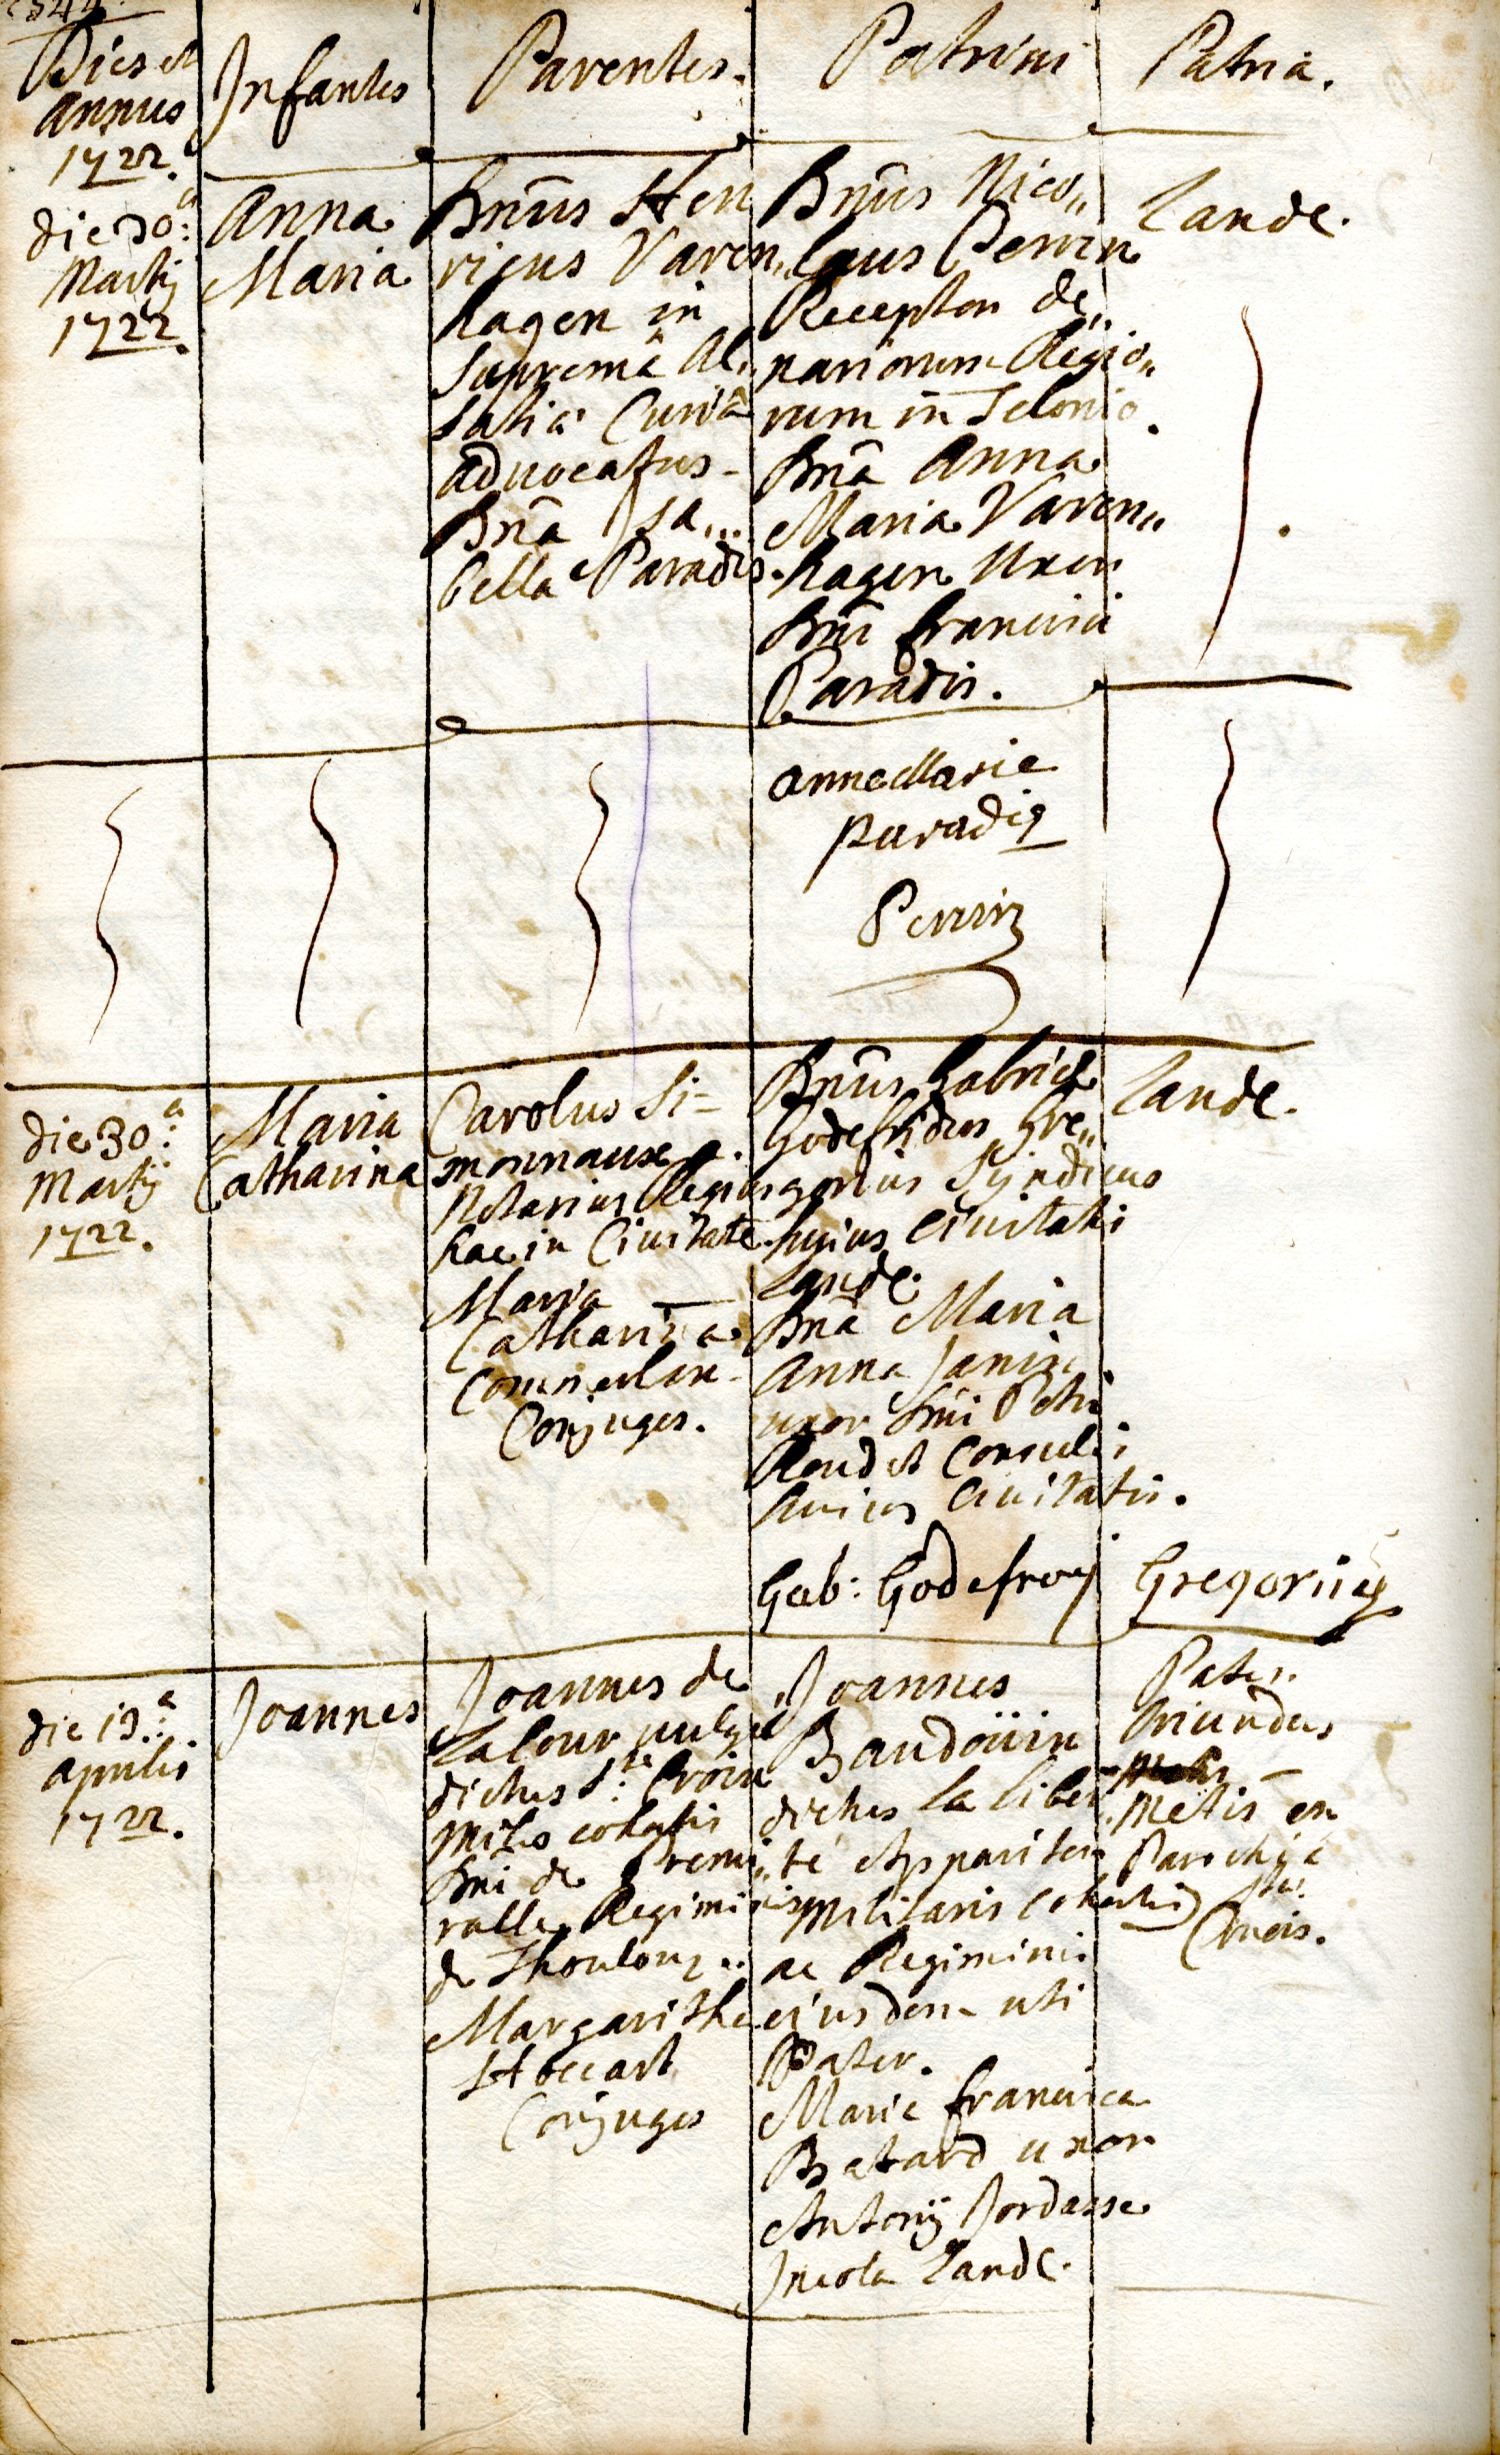 Dies et
Annus
1722.
Infantes
Parentes.
Patrini
Patria.
die 30.a
Martij
1722.
Anna
Maria
Dnus Hen
ricus Varen„
hagen in
suprema Al„
satiæ Curiâ
Advocatus -
Dna Isa...
bella Paradis.
Dnus Nico„
laus Perrin
Receptor de„
nariorum Regio„
rum in Telonio.
Dna Anna
Maria Varen„
hagen Uxor
Dni Francisci
Paradis.
Landc.
anne Marie
Paradis
Perrin
die 30.a
Martij
1722.
Maria
Catharina
Carolus Si=
monnaux
Notarius Regius
hac in Ciuitate.
Maria
Catharina
Conjuges.
Dnus Gabriel
Godefridus Gre„
gorius Syndicus
hujus Ciuitatis
Landc.
Dna Maria
Anna Janin
uxor Dni Petri
Consulis
huius Ciuitatis.
Landc.
Gab: Godefroy Gregorius
die 13.a
Aprilis
1722.
Joannes
Joannes de
Latour vulgo
dictus S.te Croix
Miles cohortis
Dni de
Regiminis
de Thoulouz..
Margaritha
Hoccart
Conjuges
Joannes
Baudoüin
dictus la liber„
té Apparitor
Militaris cohortis
ac Regiminis
ejusdem uti
Pater.
Maria Francisca
Batard uxor
Antonij Jordasse
Incola Landc.
Pater
Oriundus
Metis ex
Parochiâ
Stæ.
Crucis.